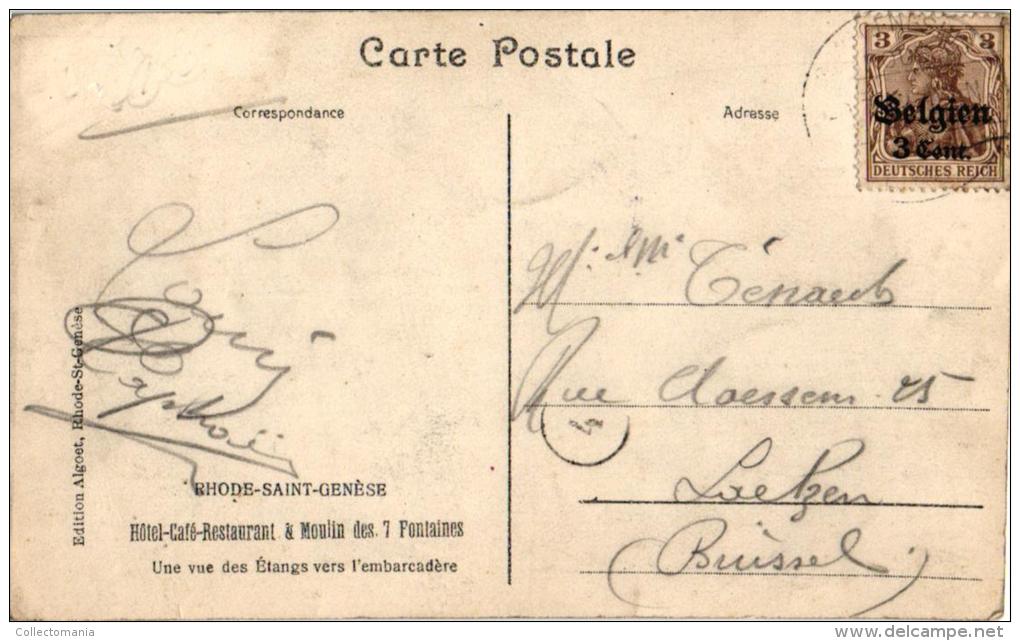 Carte Postale
Correspondance
Adresse
3 3
Belgien
3 Cent.
DEUTSCHES REICH
Rue Claessens 25
Laeken
(Brüssel)
4
Edition Algoet, Rhode-St-Genèse
RHODE-SAINT-GENÈSE
Hôtel-Café-Restaurant & Moulin des 7 Fontaines
Une vue des Étangs vers l'embarcadère
Collectomania
http://www.delcampe.net